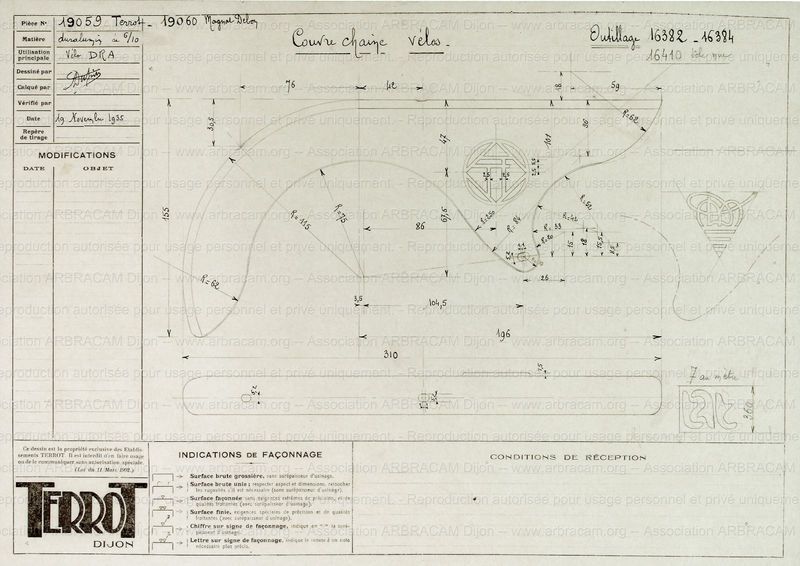 Pièce N° 19059 Terrot - 19060 Magnat Debon
Matière duralumin de 6/10
Utilisation principale Vélo DRA
Dessiné par
Calqué par
Vérifié par
Date 19 Novembre 1935
Repère de tirage
MODIFICATIONS
DATE OBJET
Couvre chaîne vélos -
Outillage 16382 - 16384
16410
76
42
59
18
30,5
R=62
47
101
36
155
R=115
R=75
67,5
86
R=250
R=84
R=50
R=42
R=33
R=20
15
18
15,5
R=62
26
3,5
104,5
196
310
7 au mètre
360
Association ARBRACAM Dijon -- www.arbracam.org -- Association ARBRACAM Dijon -- www.arbracam.org -- Association ARBRACAM Dijon
Reproduction autorisée pour usage personnel et privé uniquement. -- Reproduction autorisée pour usage personnel et privé uniquement.
Ce dessin est la propriété exclusive des Etablis-
sements TERROT. Il est interdit d'en faire usage
ou de le communiquer sans autorisation spéciale.
(Loi du 11 Mars 1902.)
TERROT
DIJON
INDICATIONS DE FAÇONNAGE
Surface brute grossière, sans surépaisseur d'usinage.
Surface brute unie ; respecter aspect et dimensions, retoucher
les rugosités s'il est nécessaire (sans surépaisseur d'usinage).
Surface façonnée sans exigences extrêmes de précision, et de
qualités frottantes (avec surépaisseur d'usinage).
Surface finie, exigences spéciales de précision et de qualités
frottantes (avec surépaisseur d'usinage).
Chiffre sur signe de façonnage, indique en m/m la suré-
paisseur d'usinage.
Lettre sur signe de façonnage, indique le renvoi à un nota
nécessaire plus précis.
CONDITIONS DE RÉCEPTION